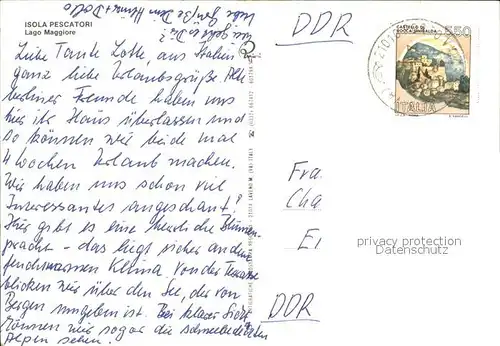 ISOLA PESCATORI
Lago Maggiore
Liebe Tante Lotte, aus Italien
ganz liebe Urlaubsgrüße. Alte
berliner Freunde haben uns
hier ihr Haus überlassen und
so können wir beide mal
4 Wochen Urlaub machen.
Wir haben uns schon viel
Interessantes angeschaut!
Hier gibt es eine herrliche Blumen-
pracht - das liegt sicher an dem
feuchtwarmen Klima. Von der Terrasse
blicken wir über den See, der von
Bergen umgeben ist. Bei klarer Sicht
können wir sogar die schneebedeckten
Alpen sehen!
Wie geht es Dir?
Liebe Grüße Dein Heinz +
DDR
CASTELLO DI
ROCCA SINIBALDA
550
ITALIA
Fra
Cha
Ei
DDR
privacy protection
Datenschutz